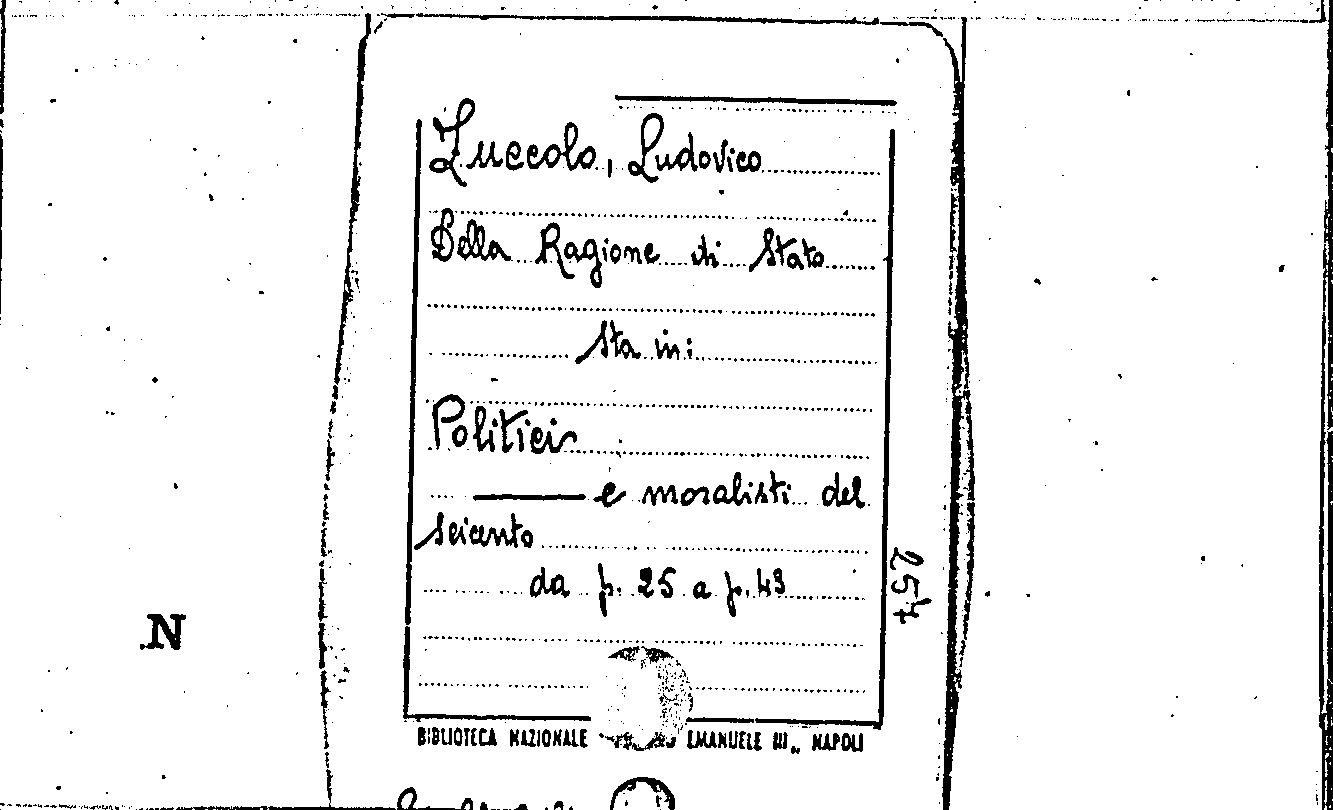 Zuccolo, Ludovico
Della Ragione di Stato
Sta in:
Politici
e moralisti del
seicento
da p. 25 a p. 43
257
N
BIBLIOTECA NAZIONALE EMANUELE III„ NAPOLI